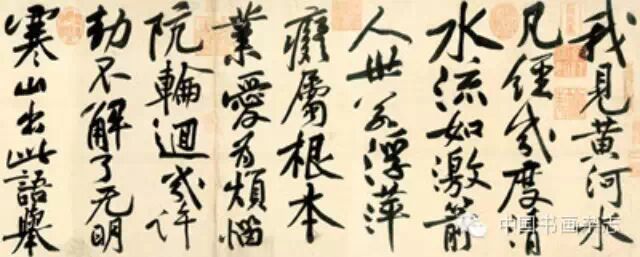 我見黃河水
凡經幾度清
水流如激箭
人世若浮萍
癡屬根本
業愛為煩惱
阬輪迴幾許
劫不解了无明
寒山出此語舉
中国书画杂志